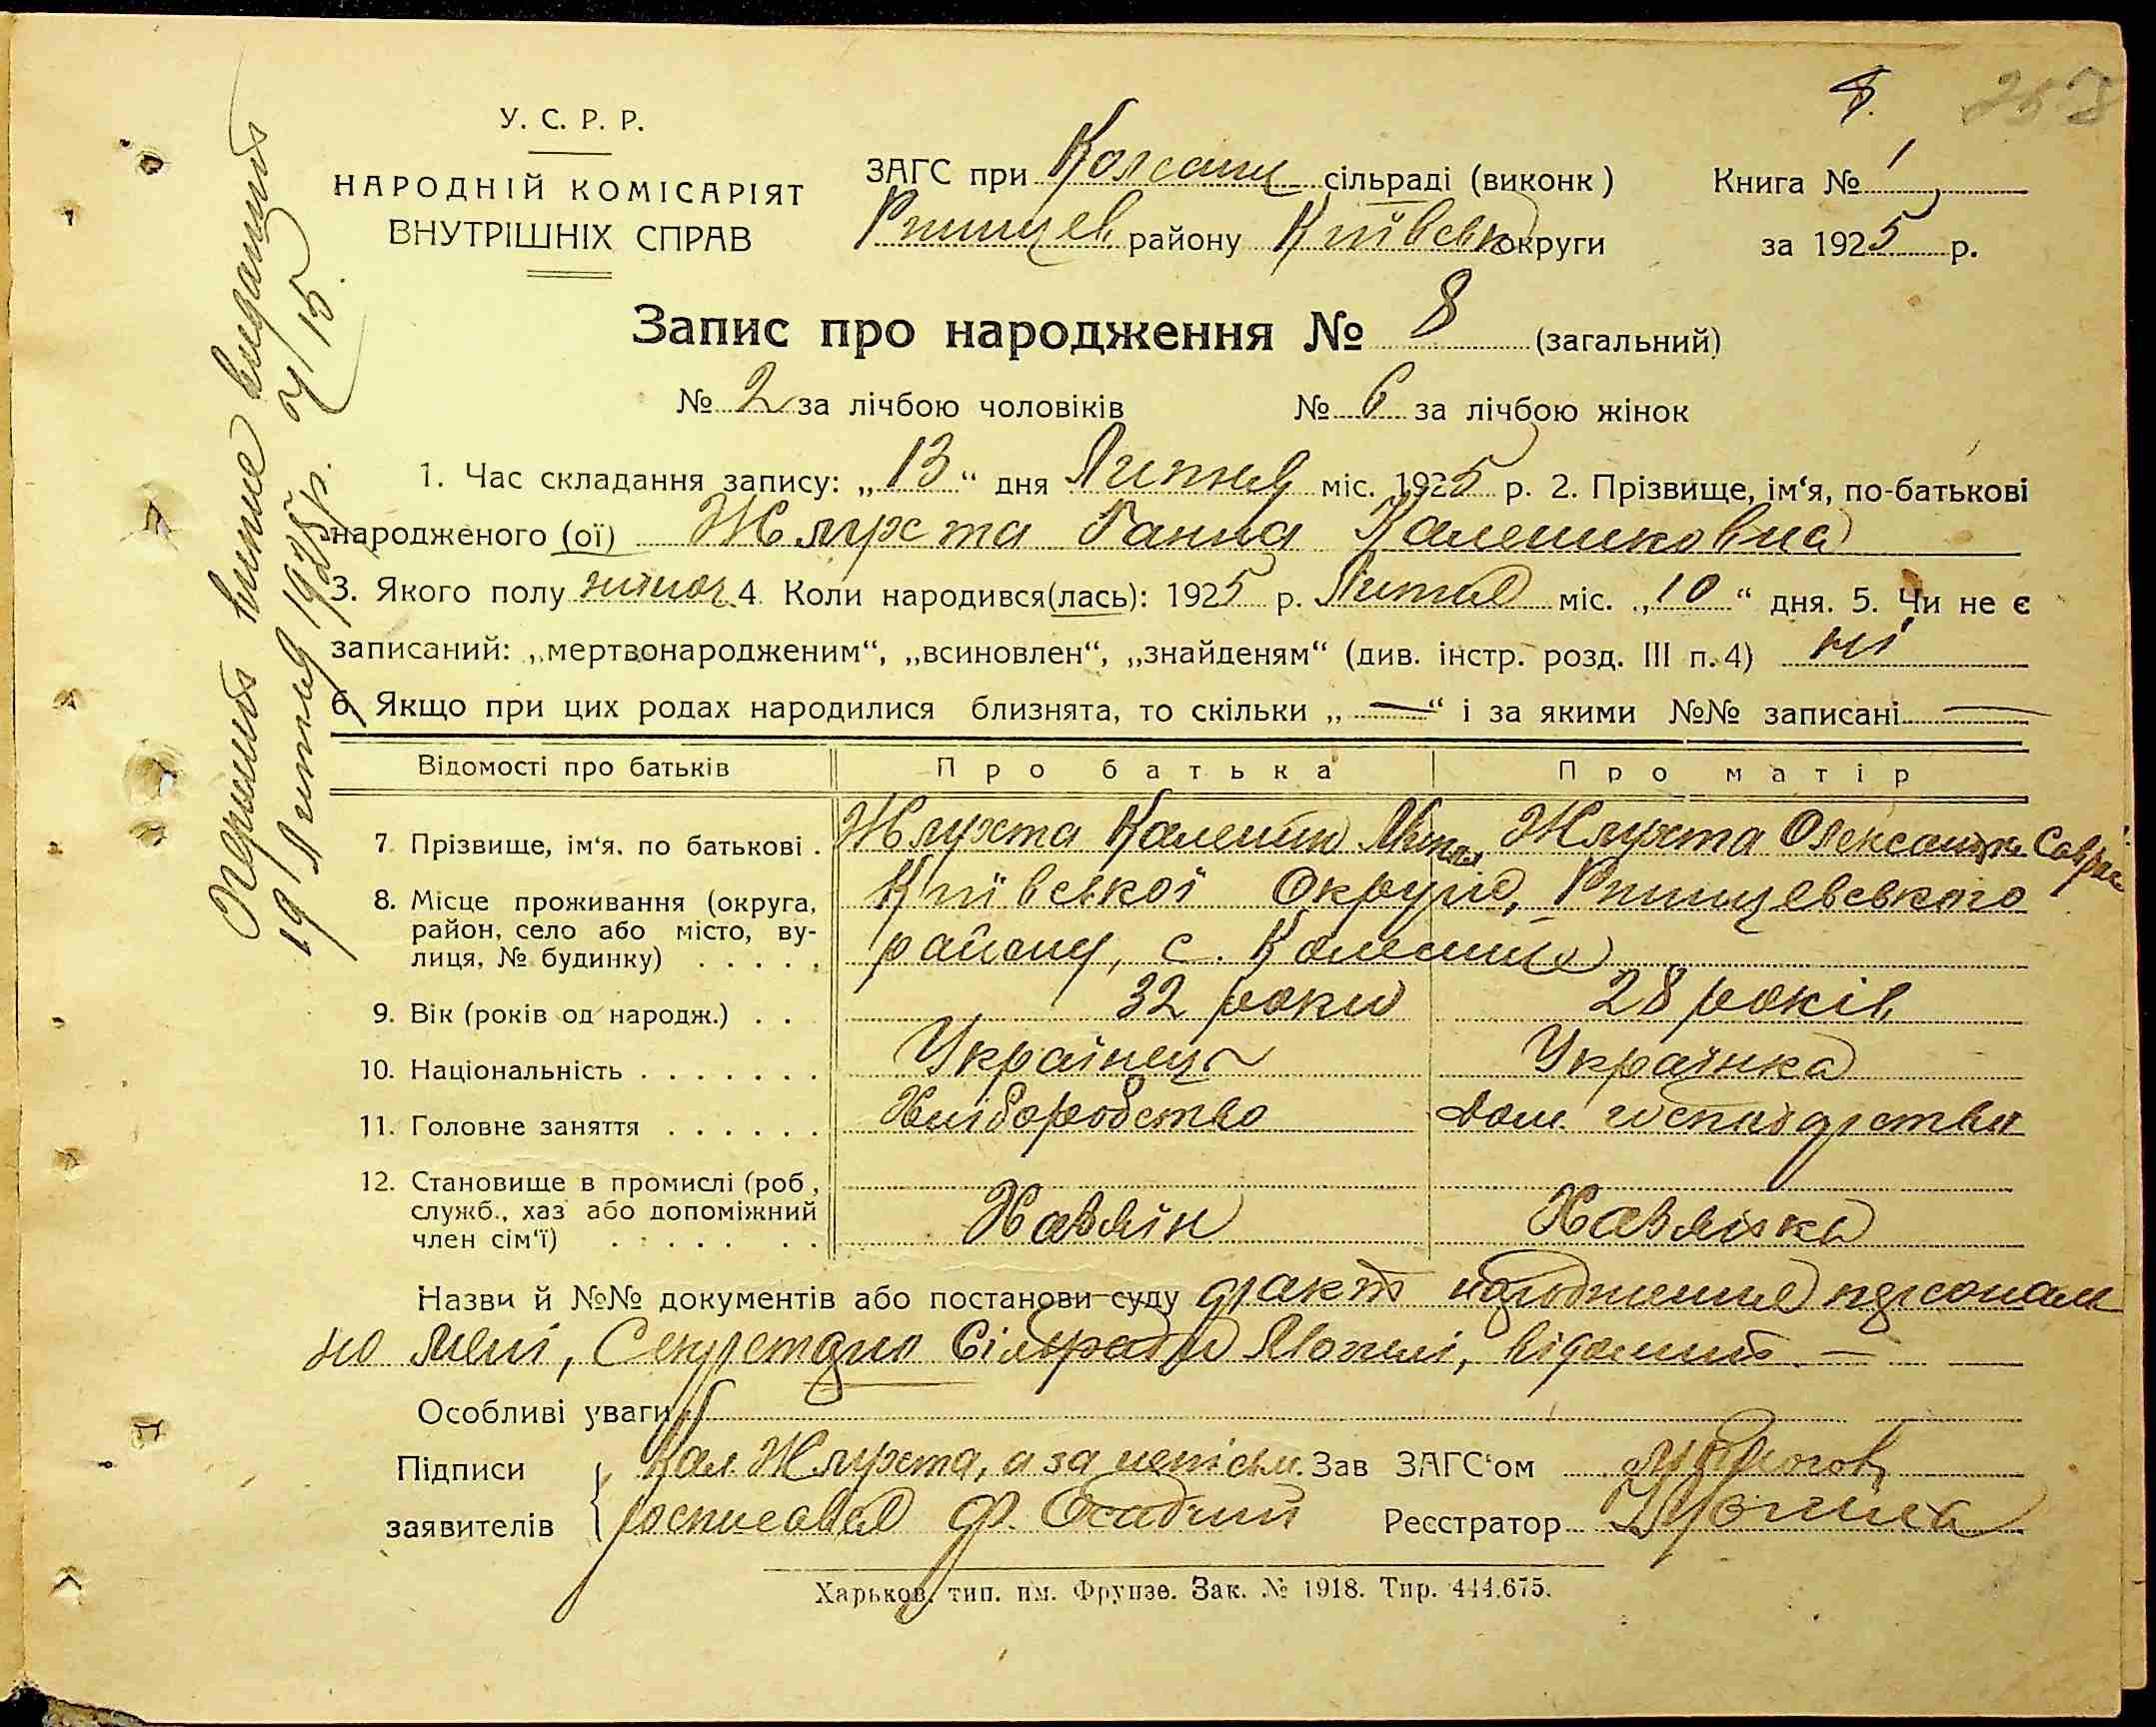 8. 258
У. С. Р. Р.
НАРОДНІЙ КОМІСАРІЯТ
ВНУТРІШНІХ СПРАВ
ЗАГС при сільраді (виконк) Книга № 1
Ржищев району Київськ округи за 1925 р.
Запис про народження № 8 (загальний)
№ 2 за лічбою чоловіків № 6 за лічбою жінок
1. Час складання запису: „13“ дня Липня міс. 1925 р. 2. Прізвище, ім‘я, по-батькові
народженого (ої) Жлукта Ганна
3. Якого полу жіноч. 4. Коли народився(лась): 1925 р. Липня міс. „10“ дня. 5. Чи не є
записаний: „мертвонародженим“, „всиновлен“, „знайденям“ (див. інстр. розд. III п. 4) ні
6. Якщо при цих родах народилися близнята, то скільки „—“ і за якими №№ записані —
Відомості про батьків Про батька Про матір
7. Прізвище, ім‘я. по батькові . Жлукта Жлукта Олександра
8. Місце проживання (округа, Київської Округи, Ржищевського
район, село або місто, ву-
лиця, № будинку) . . . . . району, с.
9. Вік (років од народж.) . . 32 роки 28 років
10. Національність . . . . . . . Українець Українка
11. Головне заняття . . . . . . Хліборобство дом. господарство
12. Становище в промислі (роб.,
служб., хаз або допоміжний
член сім‘ї) . . . . . . . Хазяїн Хазяйка
Назви й №№ документів або постанови суду факт народження персональ
но мені, Секретарю Сільради відомий. —
Особливі уваги
Підписи Кал. Жлукта, а за неписьм. Зав ЗАГС‘ом
заявителів росписався Ф. Осадчий Реєстратор
Харьков, тип. им. Фрунзе. Зак. № 1918. Тир. 444.675.
19 Липня 1925 р.